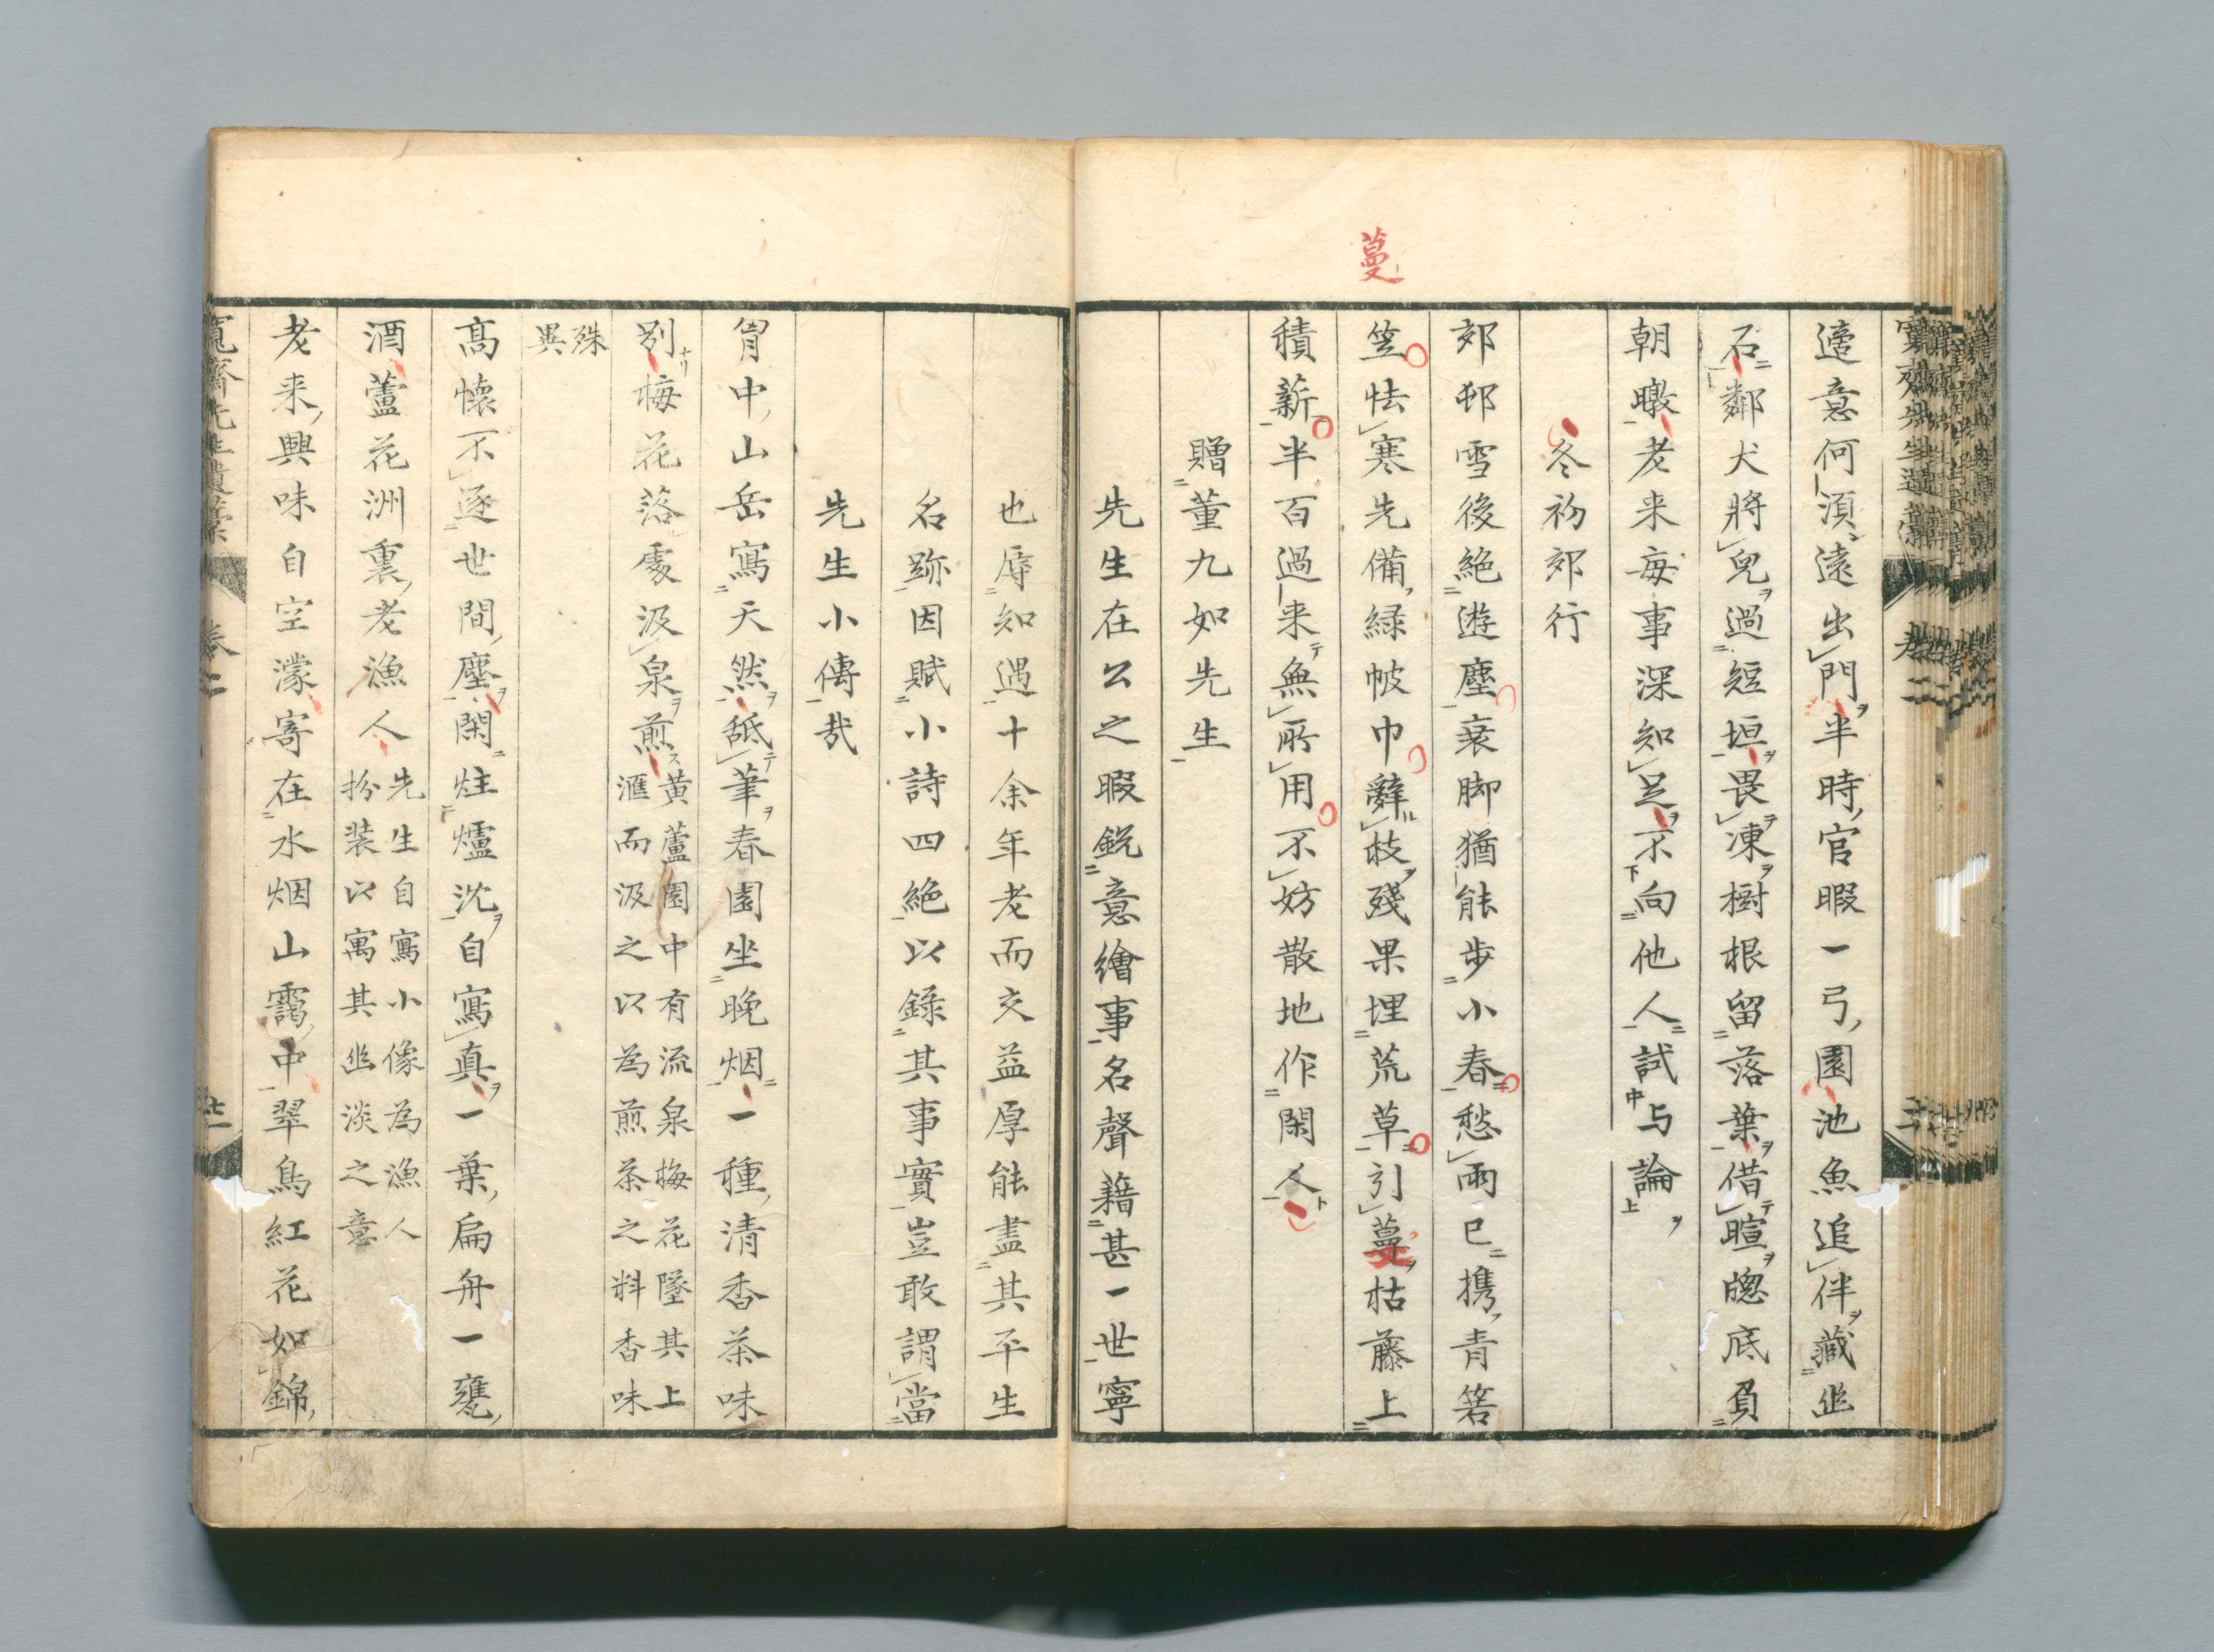 蔓
適意何須遠出門半時官暇一弓園池魚追伴藏幽
石鄰犬將兒過短垣畏凍樹根留落葉借暄牕底負
朝暾老来每事深知足不向他人試与論
冬初郊行
郊邨雪後絶遊塵衰脚猶能步小春愁雨已携青箬
笠怯寒先備緑帔巾辭枝殘果埋荒草引蔓枯藤上
積薪半百過来無所用不妨散地作閑人
贈董九如先生
先生在公之暇鋭意繪事名聲藉甚一世寧
也辱知遇十余年老而交益厚能盡其平生
名跡因賦小詩四絶以錄其事實豈敢謂當
先生小傳哉
胷中山岳寫天然舐筆春園坐晩烟一種清香茶味
別梅花落處汲泉煎黄蘆園中有流泉梅花墜其上
滙而汲之以為煎茶之料香味
殊
異
高懐不逐世間塵閑炷爐沈自寫真一葉扁舟一甕
酒蘆花洲裏老漁人先生自寫小像為漁人
扮装以寓其幽淡之意
老来興味自空濛寄在水烟山靄中翠鳥紅花如錦
寛齋先生遺稾 卷二